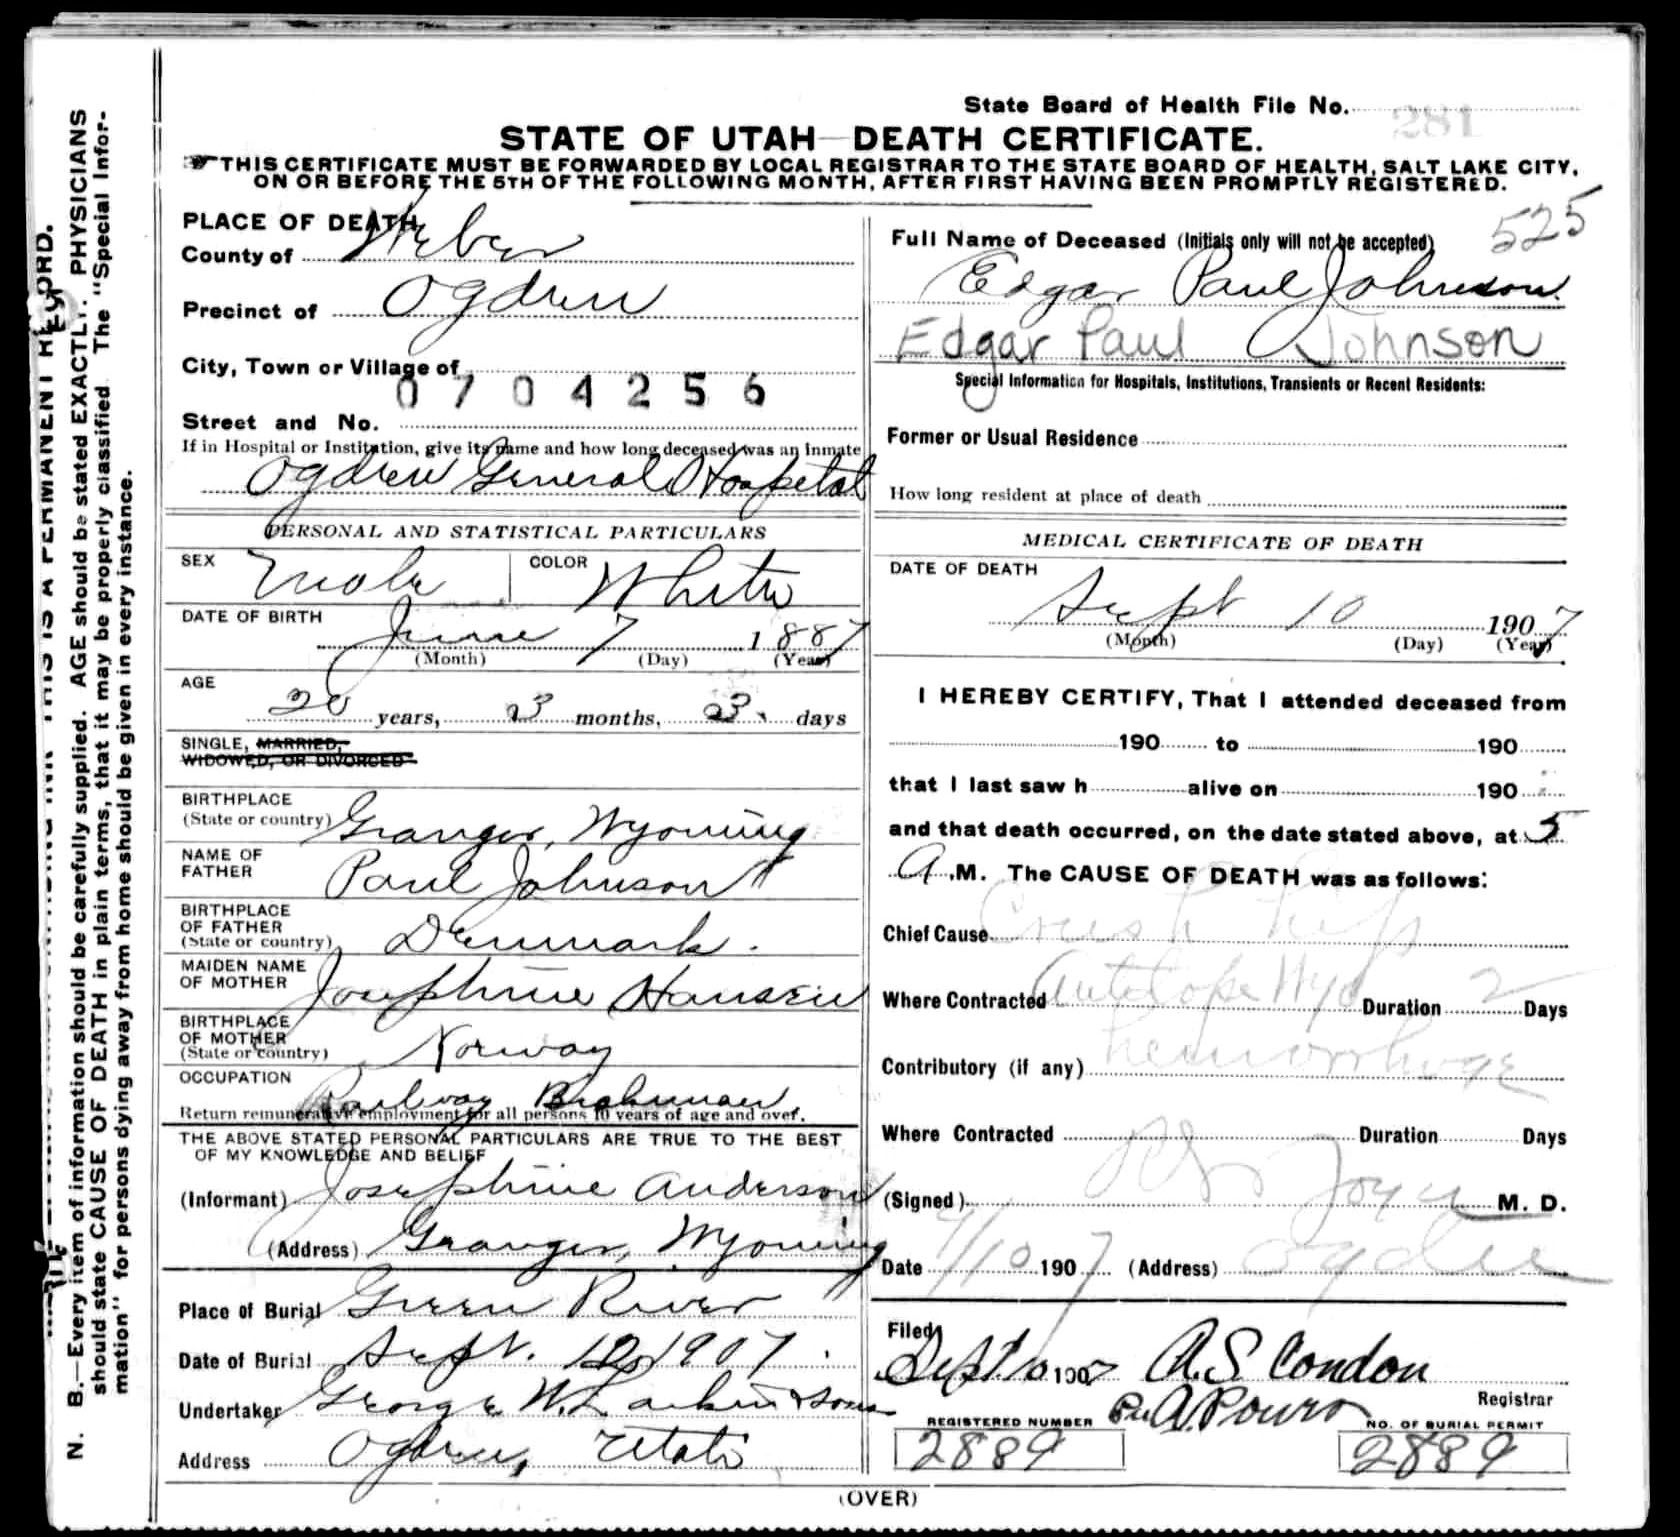 State Board of Health File No. 281
STATE OF UTAH—DEATH CERTIFICATE.
THIS CERTIFICATE MUST BE FORWARDED BY LOCAL REGISTRAR TO THE STATE BOARD OF HEALTH, SALT LAKE CITY,
ON OR BEFORE THE 5TH OF THE FOLLOWING MONTH, AFTER FIRST HAVING BEEN PROMPTLY REGISTERED.
PLACE OF DEATH
County of Weber
Precinct of Ogden
City, Town or Village of
0704256
Street and No.
If in Hospital or Institution, give its name and how long deceased was an inmate
Ogden General Hospital
PERSONAL AND STATISTICAL PARTICULARS
SEX Male COLOR White
DATE OF BIRTH
June 7 1887
(Month) (Day) (Year)
AGE
20 years, 3 months, 3 days
SINGLE, MARRIED,
WIDOWED, OR DIVORCED
BIRTHPLACE
(State or country) Granger, Wyoming
NAME OF
FATHER Paul Johnson
BIRTHPLACE
OF FATHER
(State or country) Denmark.
MAIDEN NAME
OF MOTHER Josephine Hansen
BIRTHPLACE
OF MOTHER
(State or country) Norway
OCCUPATION
Railway Brakeman
Return remunerative employment for all persons 10 years of age and over.
THE ABOVE STATED PERSONAL PARTICULARS ARE TRUE TO THE BEST
OF MY KNOWLEDGE AND BELIEF
(Informant) Josephine Anderson
(Address) Granger, Wyoming
Place of Burial Green River
Date of Burial Sept. 12, 1907
Undertaker George W. Larkin & Sons
Address Ogden, Utah
525
Full Name of Deceased (Initials only will not be accepted)
Edgar Paul Johnson
Edgar Paul Johnson
Special Information for Hospitals, Institutions, Transients or Recent Residents:
Former or Usual Residence
How long resident at place of death
MEDICAL CERTIFICATE OF DEATH
DATE OF DEATH
Sept 10 1907
(Month) (Day) (Year)
I HEREBY CERTIFY, That I attended deceased from
190 to 190
that I last saw h alive on 190
and that death occurred, on the date stated above, at 5
A.M. The CAUSE OF DEATH was as follows:
Chief Cause Crush hips
Where Contracted Antelope Wyo Duration 2 Days
Contributory (if any) hemorrhage
Where Contracted Duration Days
(Signed) Joyce M. D.
Date 9/10 1907 (Address) Ogden
Filed
Sept 10 1907 A.S. Condon
Registrar
REGISTERED NUMBER
2889
NO. OF BURIAL PERMIT
2889
(OVER)
N. B.—Every item of information should be carefully supplied. AGE should be stated EXACTLY. PHYSICIANS
should state CAUSE OF DEATH in plain terms, that it may be properly classified. The "Special Infor-
mation" for persons dying away from home should be given in every instance.
THIS IS A PERMANENT RECORD.